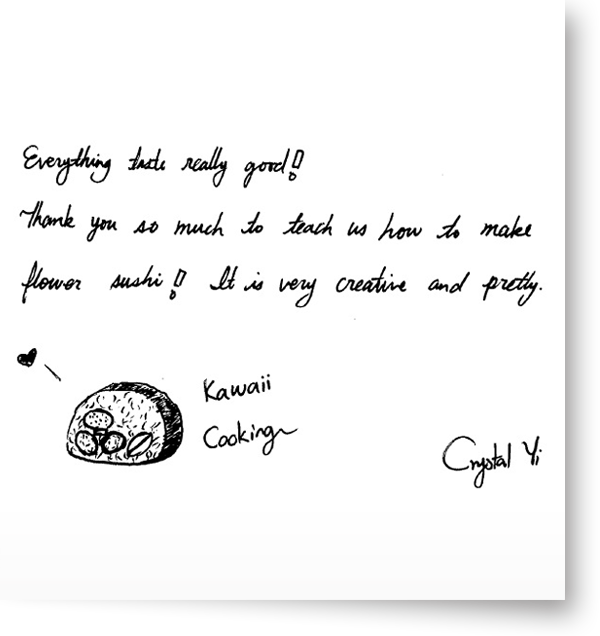 Everything taste really good!
Thank you so much to teach us how to make
flower sushi! It is very creative and pretty.
Kawaii
Cooking
Crystal Yi